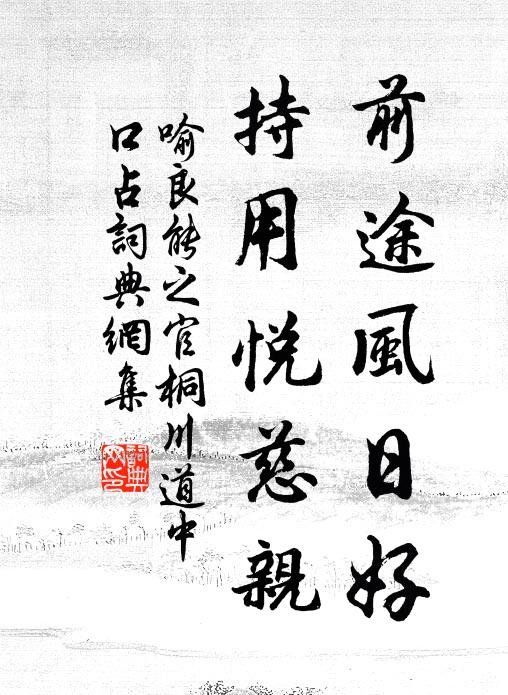 前途風日好
持用悅慈親
喻良能之官桐川道中
口占詞典網集
詞典網印